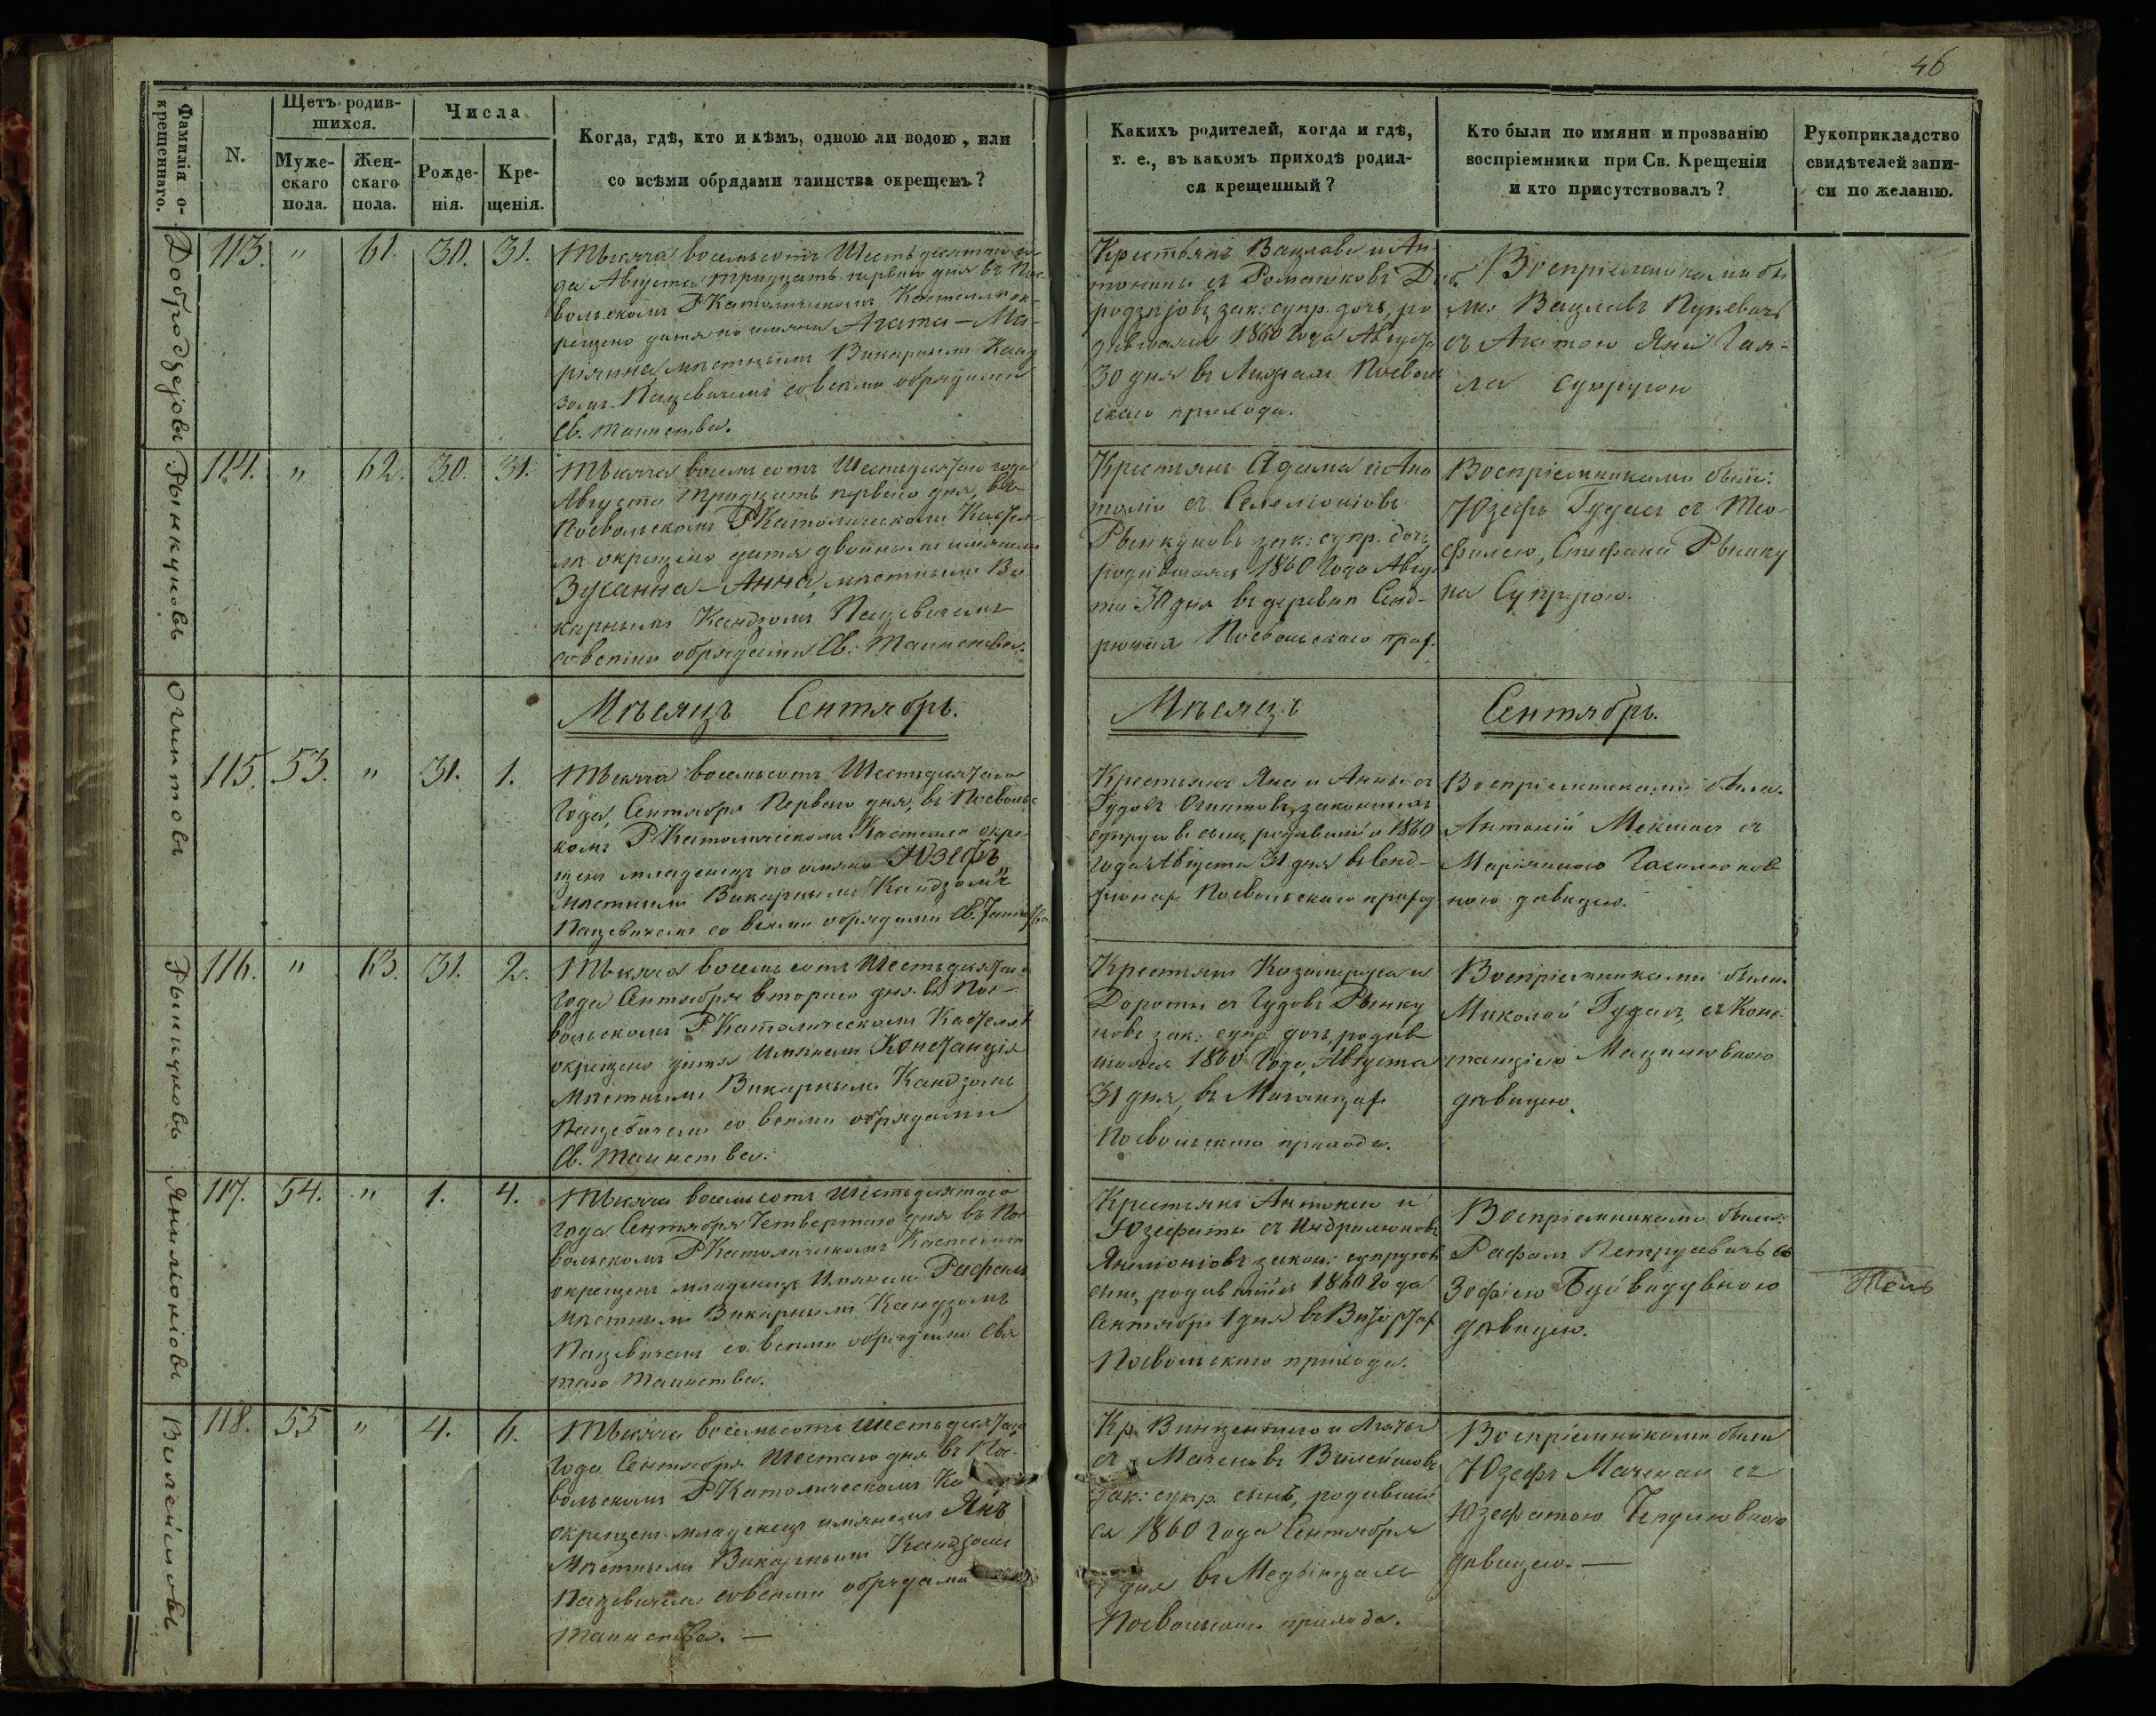 46
Фамилія о-
крещеннаго.
N.
Щетъ родив-
шихся.
Муже-
скаго
пола.
Жен-
скаго
пола.
Числа
Рожде-
нія.
Кре-
щенія.
Когда, гдѣ, кто и кѣмъ, одною ли водою, или
со всѣми обрядами таинства окрещенъ?
Какихъ родителей, когда и гдѣ,
т. е., въ какомъ приходѣ родил-
ся крещенный?
Кто были по имяни и прозванію
воспріемники при Св. Крещеніи
и кто присутствовалъ?
Рукоприкладство
свидѣтелей запи-
си по желанію.
Добродзеjовъ
113. " 61. 30. 31.
Тысяча восемьсотъ Шестьдесятаго го-
да Августа тридцать перваго дня въ Пос-
вольскомъ РКатолическомъ Костелѣ ок-
рещено дитя по имяни Агата-Ма-
ріянна мѣстнымъ Викарнымъ Кънд
зомъ Пацевичемъ совсѣми обрядами
Св. таинства.
Крестьянъ Вацлава и Ан
тонины съ Ромашковъ Доб
родзеjовъ зак: супр. дочь, ро
дившаяся 1860 года Августа
30 дня въ Посволь
скаго прихода.
Воспріемниками бы
ли: Вацлавъ Пуневичъ
съ Агатою Яна Гай-
ла супругою
Рынкуновъ
114. " 62. 30. 31.
Тысяча восемьсотъ Шестьдесятаго года
Августа тридцать перваго дня, въ
Посвольскомъ РКатолическомъ Косте-
лѣ окрещено дитя двойнымъ имянемъ
Зусанна-Анна, мѣстнымъ Ви
карнымъ Кендзомъ Пацевичемъ
совсѣми обрядами Св. Таинства.
Крестьянъ Адама и Ана
толіи съ Селемоніовъ
Рынкуновъ зак: супр. дочь
родившаяся 1860 года Авгус
та 30 дня въ деревнѣ Сенд-
Посвольскаго прих.
Воспріемниками были:
Юзефъ Гудасъ съ Тео-
филею, Стефана Рынку
на Супругою.
Огинтовъ
Мѣсяцъ Сентябрь.
Мѣсяцъ Сентябрь.
115. 53. " 31. 1.
Тысяча восемьсотъ Шестьдесятаго
года, Сентября Перваго дня, въ Посволь-
комъ РКатолическомъ Костелѣ окре-
щенъ младенецъ по имяни Юзефъ
мѣстнымъ Викарнымъ Кендзомъ
Пацевичемъ со всѣми обрядами Св. Таинства.
Крестьянъ Яна и Анны съ
Гудовъ Огинтовъ, законныхъ
супруговъ сынъ, родившійся 1860
года Августа 31 дня въ Сенд-
Посвольскаго приход
Воспріемниками были.
Антоній Мекшасъ съ
Маріянною Гасилюнов
ною дѣвицею.
Рынкуновъ
116. " 63. 31. 2.
Тысяча восемьсотъ Шестьдесятаго
года Сентября втораго дня въ Пос-
вольскомъ РКатолическомъ Костелѣ
окрещено дитя имянемъ Констанція
Мѣстнымъ Викарнымъ Кендзомъ
Пацевичемъ со всѣми обрядами
Св. Таинства.
Крестьянъ Казимержа и
Дороты съ Гудовъ Рынку
новъ зак: супр. дочь, родив
шаяся 1860 года, Августа
31 дня, въ
Посвольскаго прихода.
Воспріемниками были
Миколай Гудасъ, съ Конс-
танціею Мацюновною
дѣвицею.
Янилюніовъ
117. 54. " 1. 4.
Тысяча восемьсотъ Шестьдесятаго
года Сентября Четвертаго дня въ Пос-
вольскомъ РКатолическомъ Костелѣ
окрещенъ младенецъ Имянемъ Рафалъ
Мѣстнымъ Викарнымъ Кендзомъ
Пацевичемъ со всѣми обрядами Свя
таго Таинства.
Крестьянъ Антонія и
Юзефаты съ Индрилюновъ
Янилюніовъ закон: супруговъ
сынъ, родившійся 1860 года
Сентября 1 дня въ
Посвольскаго прихода.
Воспріемниками были:
Рафалъ Петрусевичъ съ
Зофіею Буйвидувною
дѣвицею.
Вилейшовъ
118. 55 " 4. 6.
Тысяча восемьсотъ Шестьдесятаго
года Сентября Шестаго дня въ Пос-
вольскомъ РКатолическомъ Ко
окрещенъ младенецъ имянемъ Янъ
Мѣстнымъ Викарнымъ Кендзомъ
Пацевичемъ совсѣми обрядами
Таинства. —
Кр. Винцентаго и Агаты
съ Маченовъ Вилейшовъ
зак: супр. сынъ, родившій
ся 1860 года Сентября
дня въ
Посвольскаго прихода.
Воспріемниками были
Юзефъ Маченасъ съ
Юзефатою
дѣвицею. —